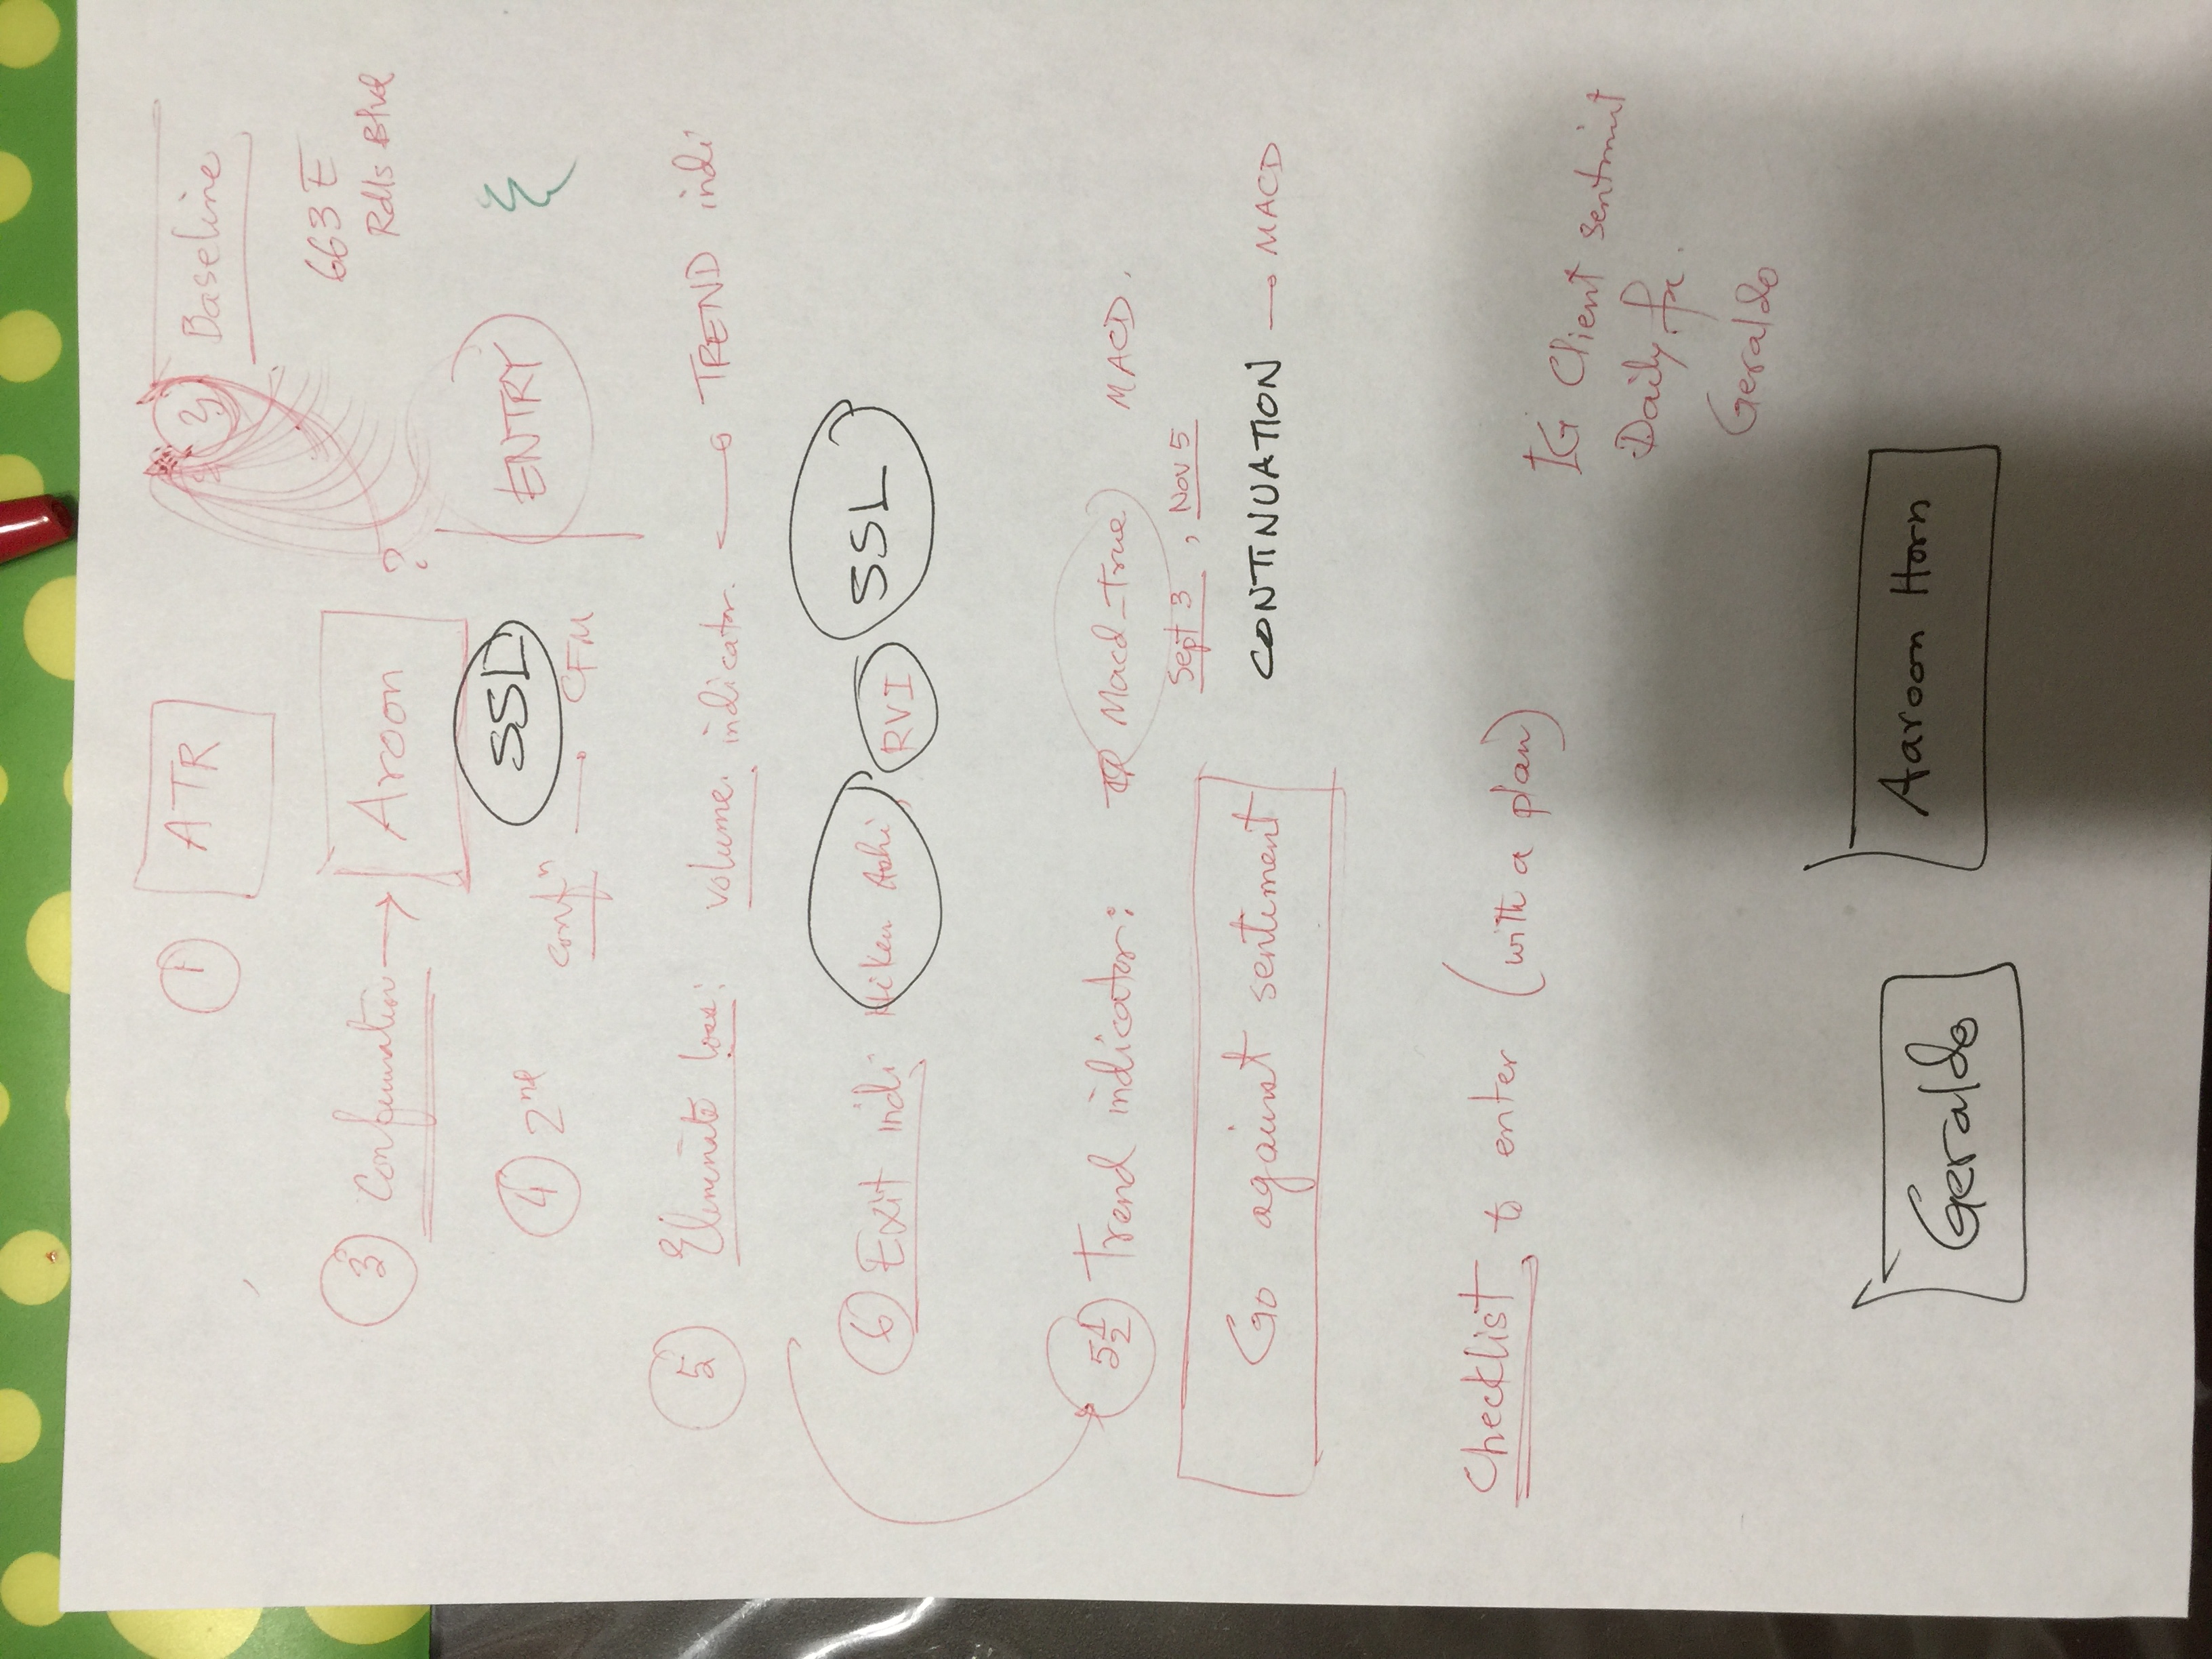 ① ATR ② Baseline
③ Confirmation → Aroon ?
663 E
Rolls Blvd
④ 2nd confn → CFM SSL ENTRY
⑤ Eliminate loss: volume indicator. → TREND indi
⑥ Exit indi: Hiken Ashi, RVI SSL
5½ Trend indicator: Macd_True MACD.
Sept 3, Nov 5
Go against sentiment CONTINUATION → MACD
Checklist to enter (with a plan)
IG Client sentiment
Daily fx.
Geraldo
Geraldo Aaroon Horn